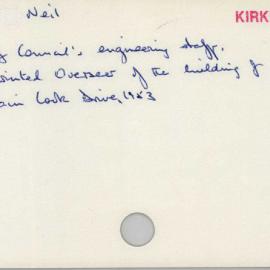 Neil KIRK
Council's engineering staff.
ointed Overseer of the building of
ain Cook Drive, 1983